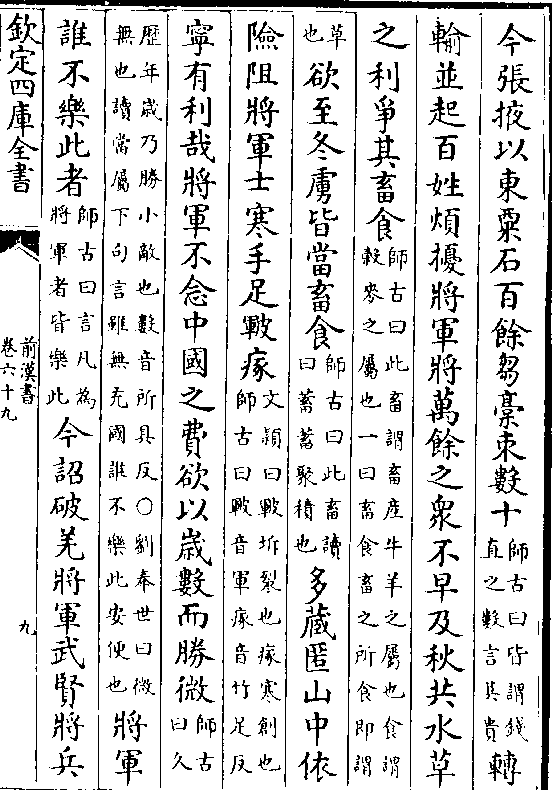 今張掖以東粟石百餘芻稾束數十師古曰皆謂錢直之數言其貴轉
輸並起百姓煩擾將軍將萬餘之衆不早及秋共水草
之利爭其畜食師古曰此畜謂畜産牛羊之屬也食謂榖麥之屬也一曰畜食畜之所食即謂
草也欲至冬虜皆當畜食師古曰此畜讀曰蓄蓄聚積也多藏匿山中依
險阻將軍士寒手足皸瘃文頴曰皸坼裂也瘃寒創也師古曰皸音軍瘃音竹足反
寧有利哉將軍不念中國之費欲以歳數而勝微師古曰久
歴年歳乃勝小敵也數音所具反○劉奉世曰微無也讀當屬下句言雖無充國誰不樂此安便也將軍
誰不樂此者師古曰言凡為將軍者皆樂此今詔破羌將軍武賢將兵
欽定四庫全書
前漢書
卷六十九
九